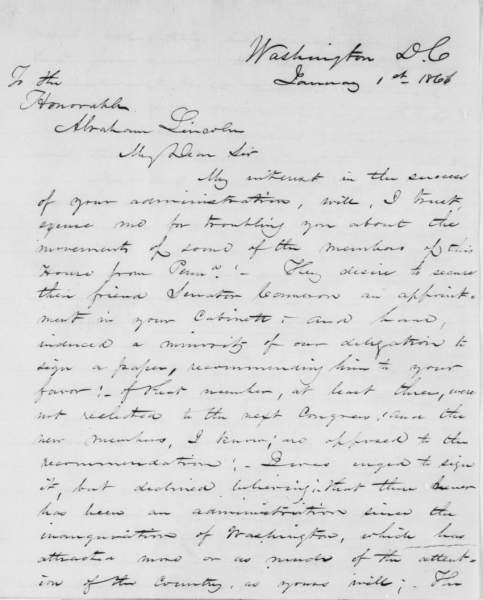 Washington D.C
January 1st 1861
To the
Honorable
Abraham Lincoln
My Dear Sir
My interest in the success
of your administration, will, I trust,
excuse me for troubling you about the
movements of some of the members of this
House from Penna. - They desire to secure
their friend Senator Cameron an appoint-
ment in your Cabinet; - and have,
induced a minority of our delegation to
sign a paper, recommending him to your
favor: - of that number, at least three, were
not reelected to the next Congress; and the
new members, I know, are opposed to the
recommendation: - I was urged to sign
it, but declined believing that there never
has been an administration since the
inauguration of Washington, which has
attracted more or as much of the attent-
ion of the Country, as yours will; - The